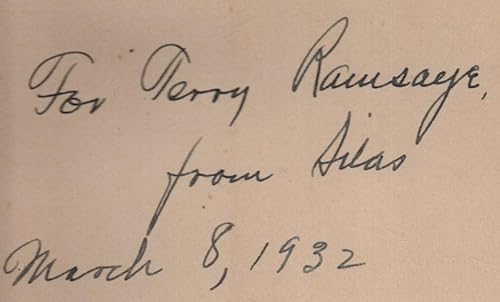 For Terry Ramsaye,
from Silas
March 8, 1932